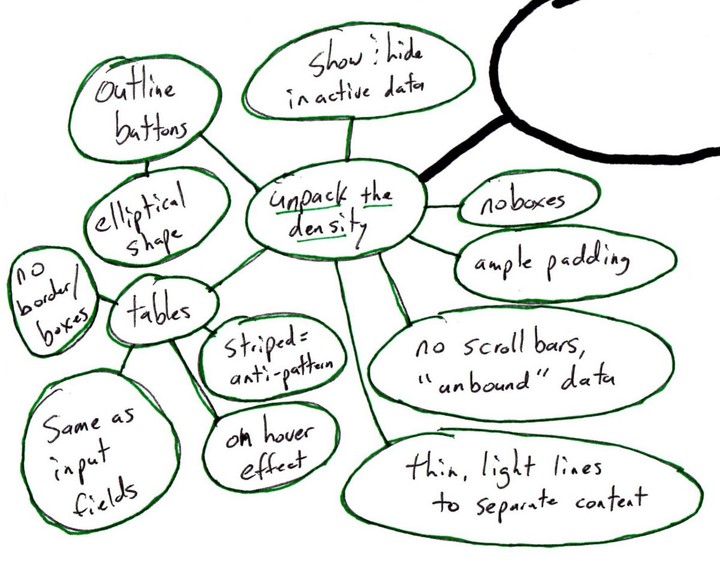 Show & hide
inactive data
Outline
buttons
unpack the
density
elliptical
shape
no boxes
ample padding
no
border/
boxes
tables
striped =
anti-pattern
no scroll bars,
"unbound" data
Same as
input
fields
on hover
effect
thin, light lines
to separate content